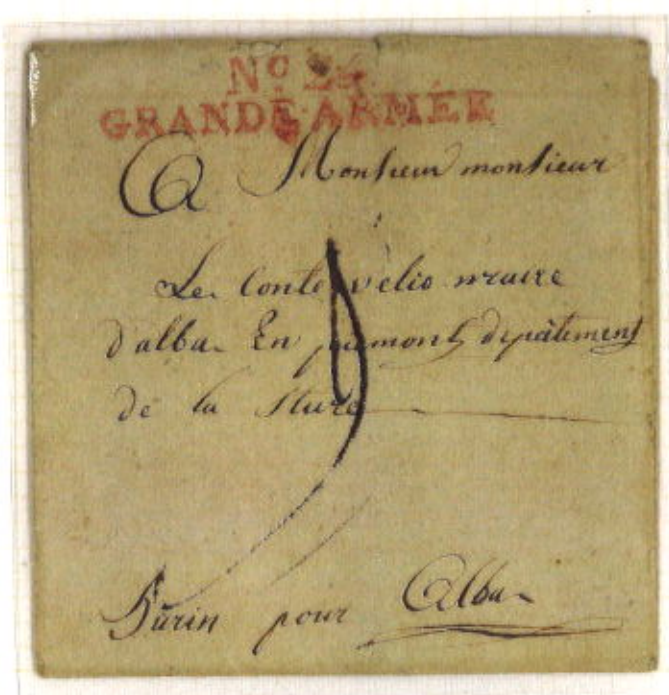 No 24.
GRANDE ARMÉE
A Monsieur monsieur
Le Conte velio maire
d'alba En piemont depâtement
de la Sture
Turin pour Alba